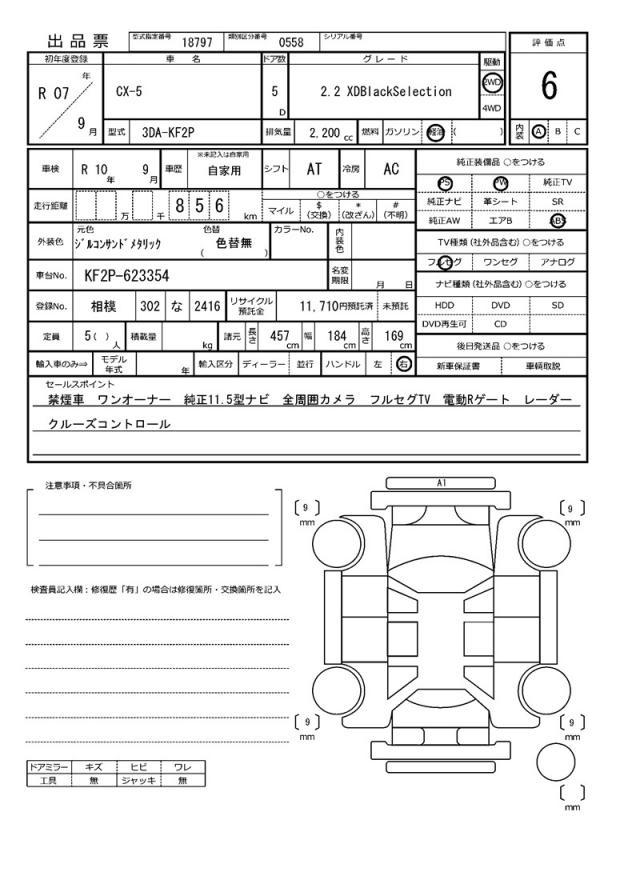 出品票 型式指定番号 18797 類別区分番号 0558 シリアル番号
評価点
6
内装 A B C
初年度登録 車名 ドア数 グレード 駆動
R 07 年 9 月 CX-5 5 D 2.2 XDBlackSelection 2WD 4WD
型式 3DA-KF2P 排気量 2,200 cc 燃料 ガソリン 軽油 ( )
車検 R 10 年 9 月 車歴 ※未記入は自家用 自家用 シフト AT 冷房 AC
走行距離 万 千 8 5 6 km ○をつける
マイル $ (交換) * (改ざん) # (不明)
外装色 元色 ジルコンサンドメタリック 色替 ( 色替無 ) カラーNo. 内装色
車台No. KF2P-623354 名変期限 月 日
登録No. 相模 302 な 2416 リサイクル預託金 11,710円預託済 未預託
定員 5( ) 人 積載量 kg 諸元 長さ 457 cm 幅 184 cm 高さ 169 cm
輸入車のみ⇒ モデル年式 年 輸入区分 ディーラー 並行 ハンドル 左 右
純正装備品 ○をつける
PS PW 純正TV
純正ナビ 革シート SR
純正AW エアB ABS
TV種類 (社外品含む) ○をつける
フルセグ ワンセグ アナログ
ナビ種類 (社外品含む) ○をつける
HDD DVD SD
DVD再生可 CD
後日発送品 ○をつける
新車保証書 車輌取説
セールスポイント
禁煙車 ワンオーナー 純正11.5型ナビ 全周囲カメラ フルセグTV 電動Rゲート レーダー
クルーズコントロール
注意事項・不具合箇所
検査員記入欄：修復歴「有」の場合は修復箇所・交換箇所を記入
ドアミラー キズ ヒビ ワレ
工具 無 ジャッキ 無
A1
9 mm
9 mm
9 mm
9 mm
mm